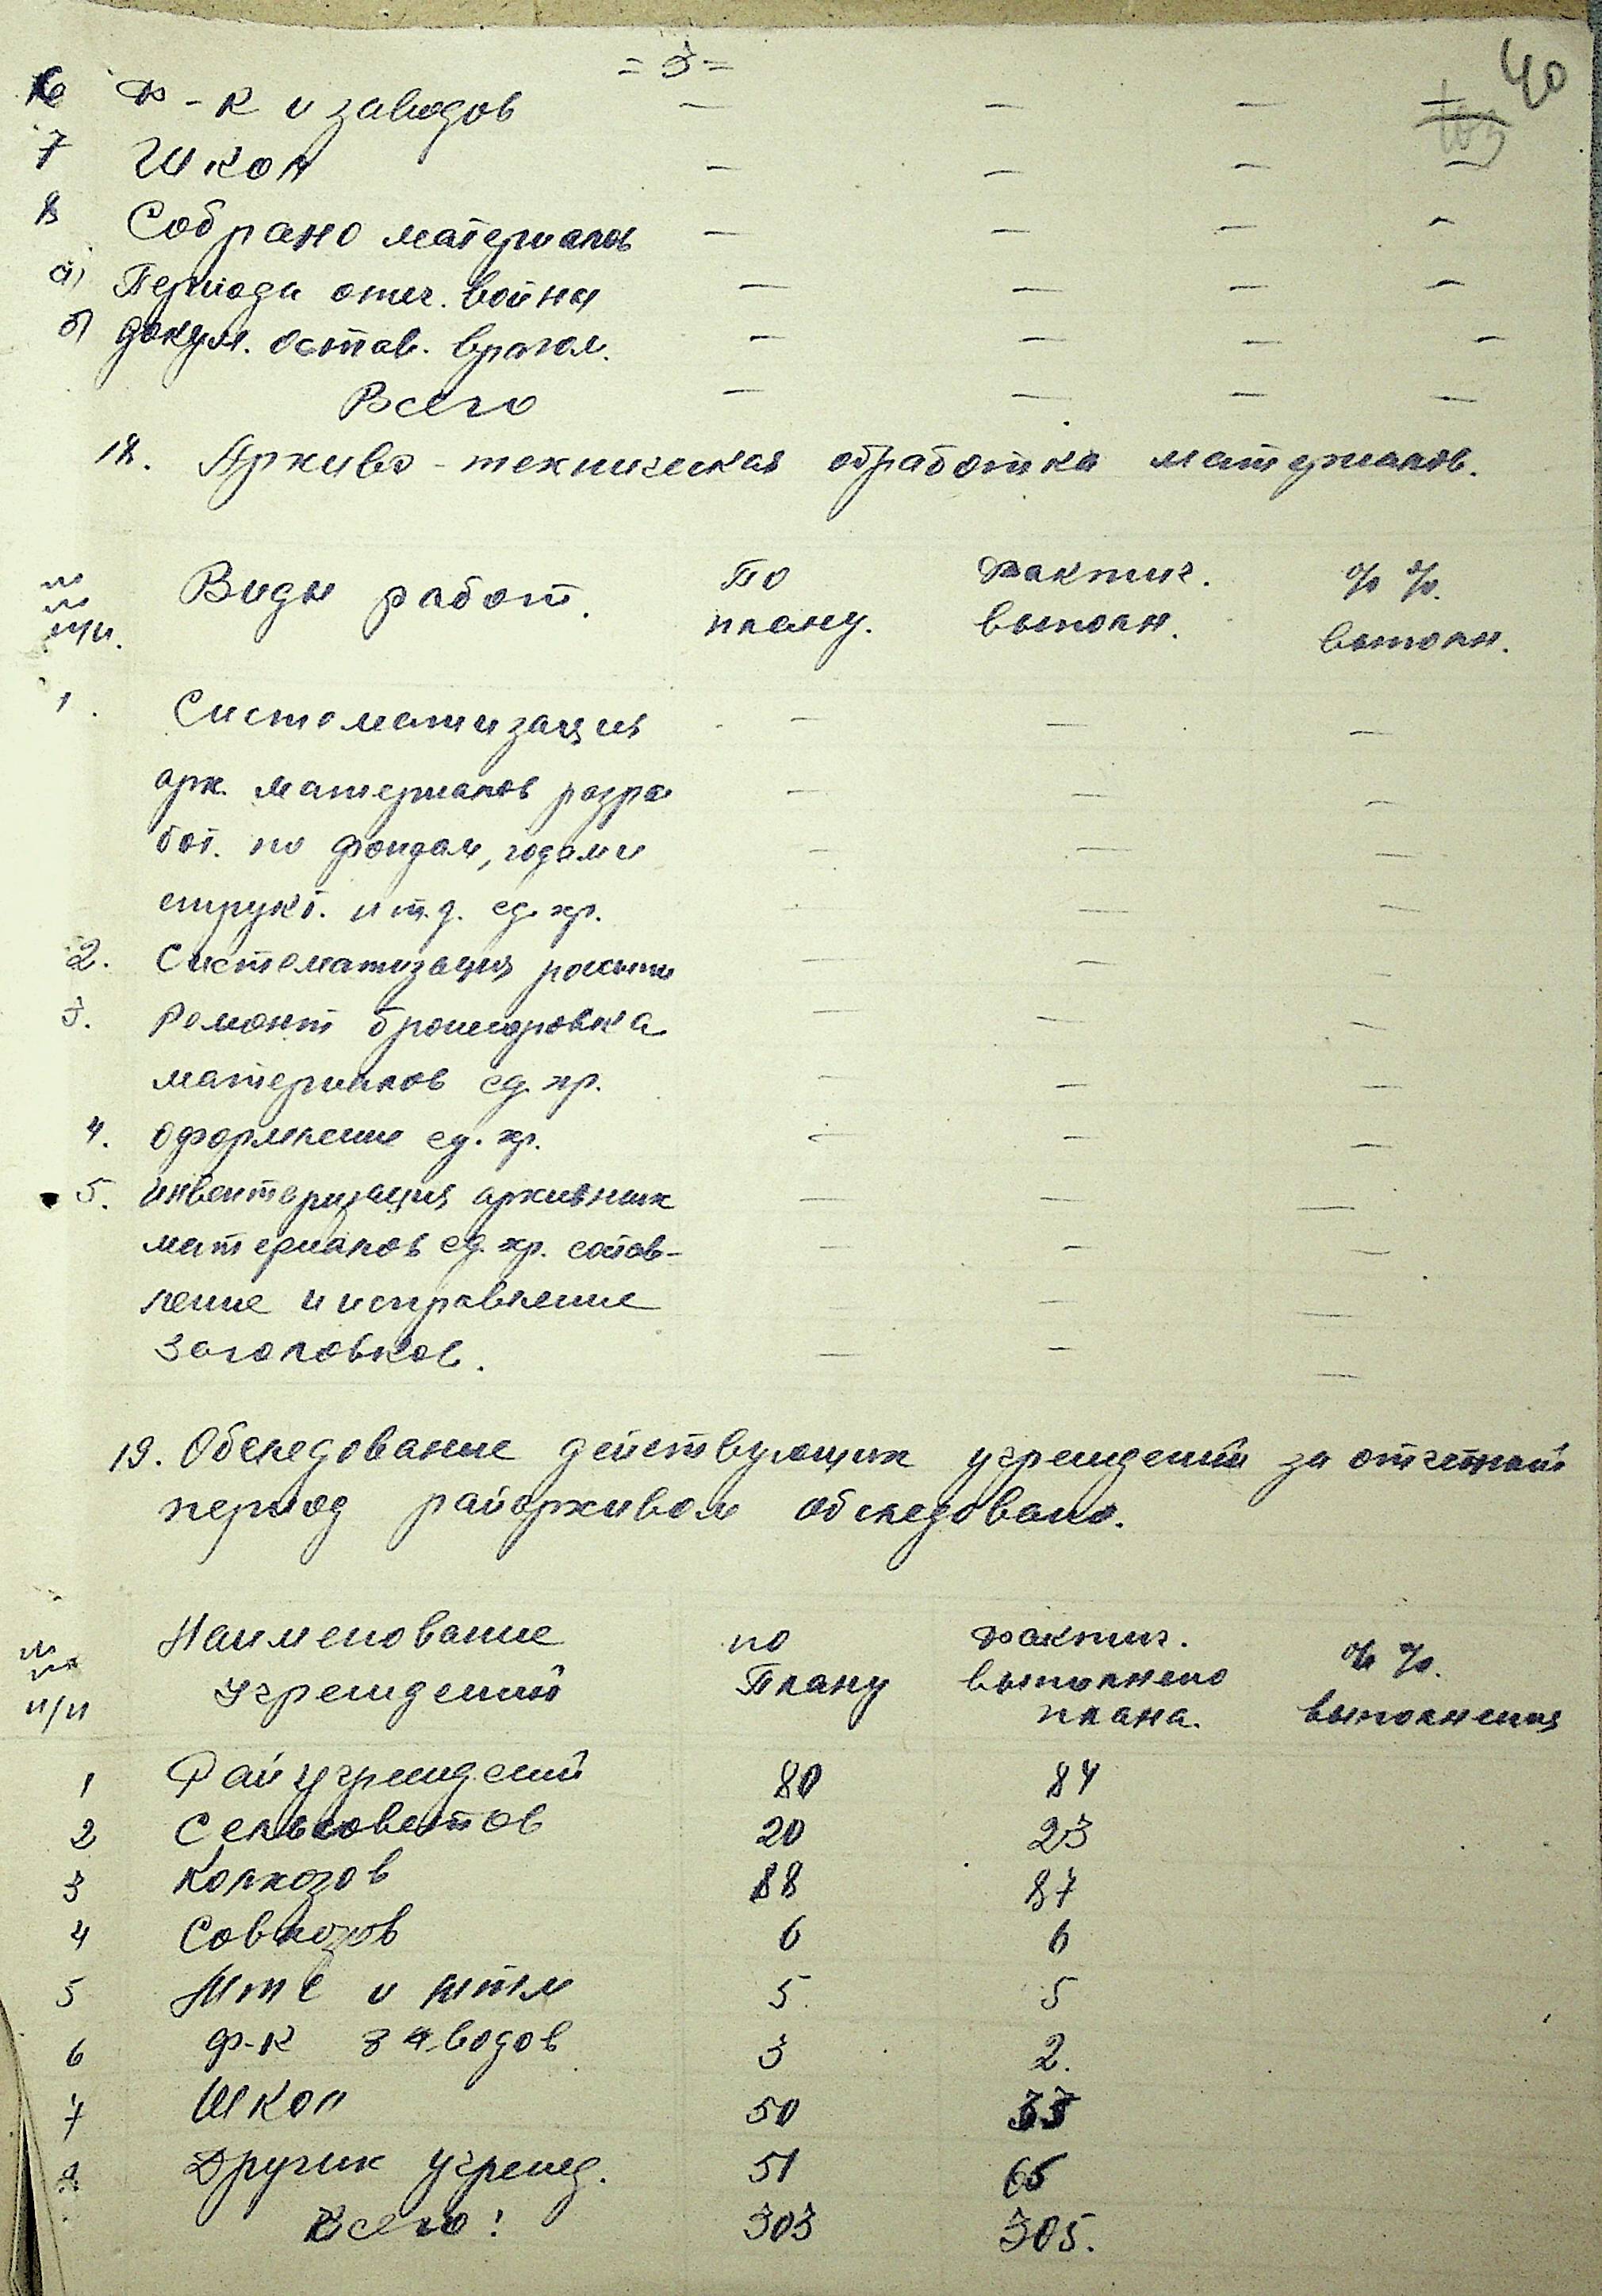 = 3 =
40
103
6 Ф-к и заводов — — — —
7 Школ — — — —
8 Собрано материалов — — — —
а) Периода отеч. войны — — — —
б) докум. остав. врагом. — — — —
Всего — — — —
18. Архиво-техническая обработка материалов.
№№ п/п. Виды работ. По плану. Фактич. выполн. % %. выполн.
1. Систематизация — — —
арх. материалов разра — — —
бот. по фондам, годам и — — —
структ. и т.д. ед. хр. — — —
2. Систематизация россыпи — — —
3. Ремонт брошюровка — — —
материалов ед. хр. — — —
4. Оформление ед. хр. — — —
5. инвентаризация архивных — — —
материалов ед. хр. состав- — — —
ление и исправление — — —
заголовков. — — —
19. Обследование действующих учреждений за отчетный
период райархивом обследовано.
№№ п/п Наименование учреждений по плану Фактич. выполнено плана. % %. выполнения
1 Райучреждений 80 84
2 Сельсоветов 20 23
3 Колхозов 88 87
4 Совхозов 6 6
5 Мтс и 5. 5
6 ф-к заводов 3 2.
7 Школ 50 33
8 Других учрежд. 51 65
Всего: 303 305.